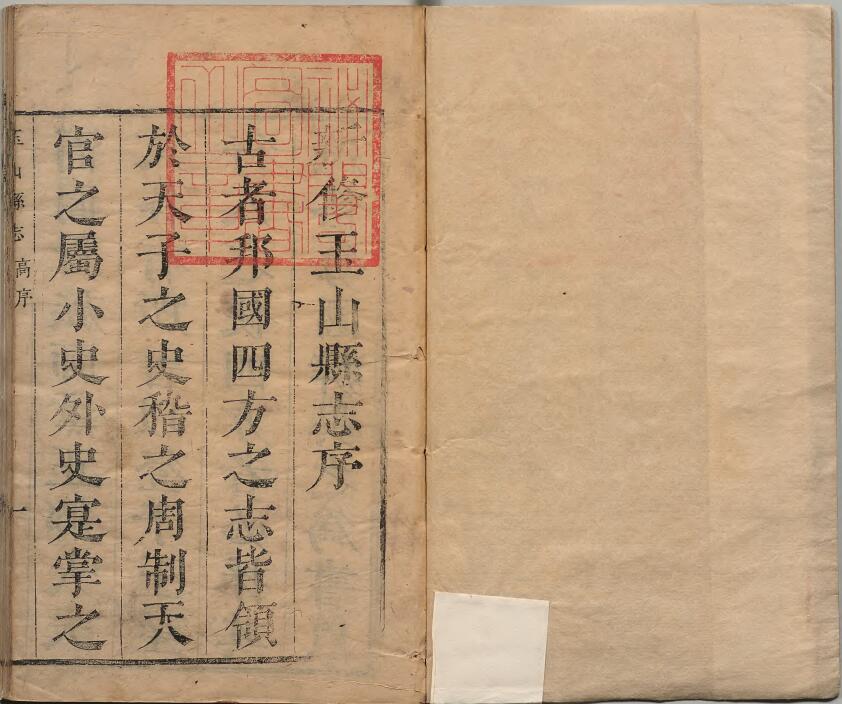 新修玉山縣志序
古者邦國四方之志皆領
於天子之史稽之周制天
官之屬小史外史寔掌之
玉山縣志 高序 一